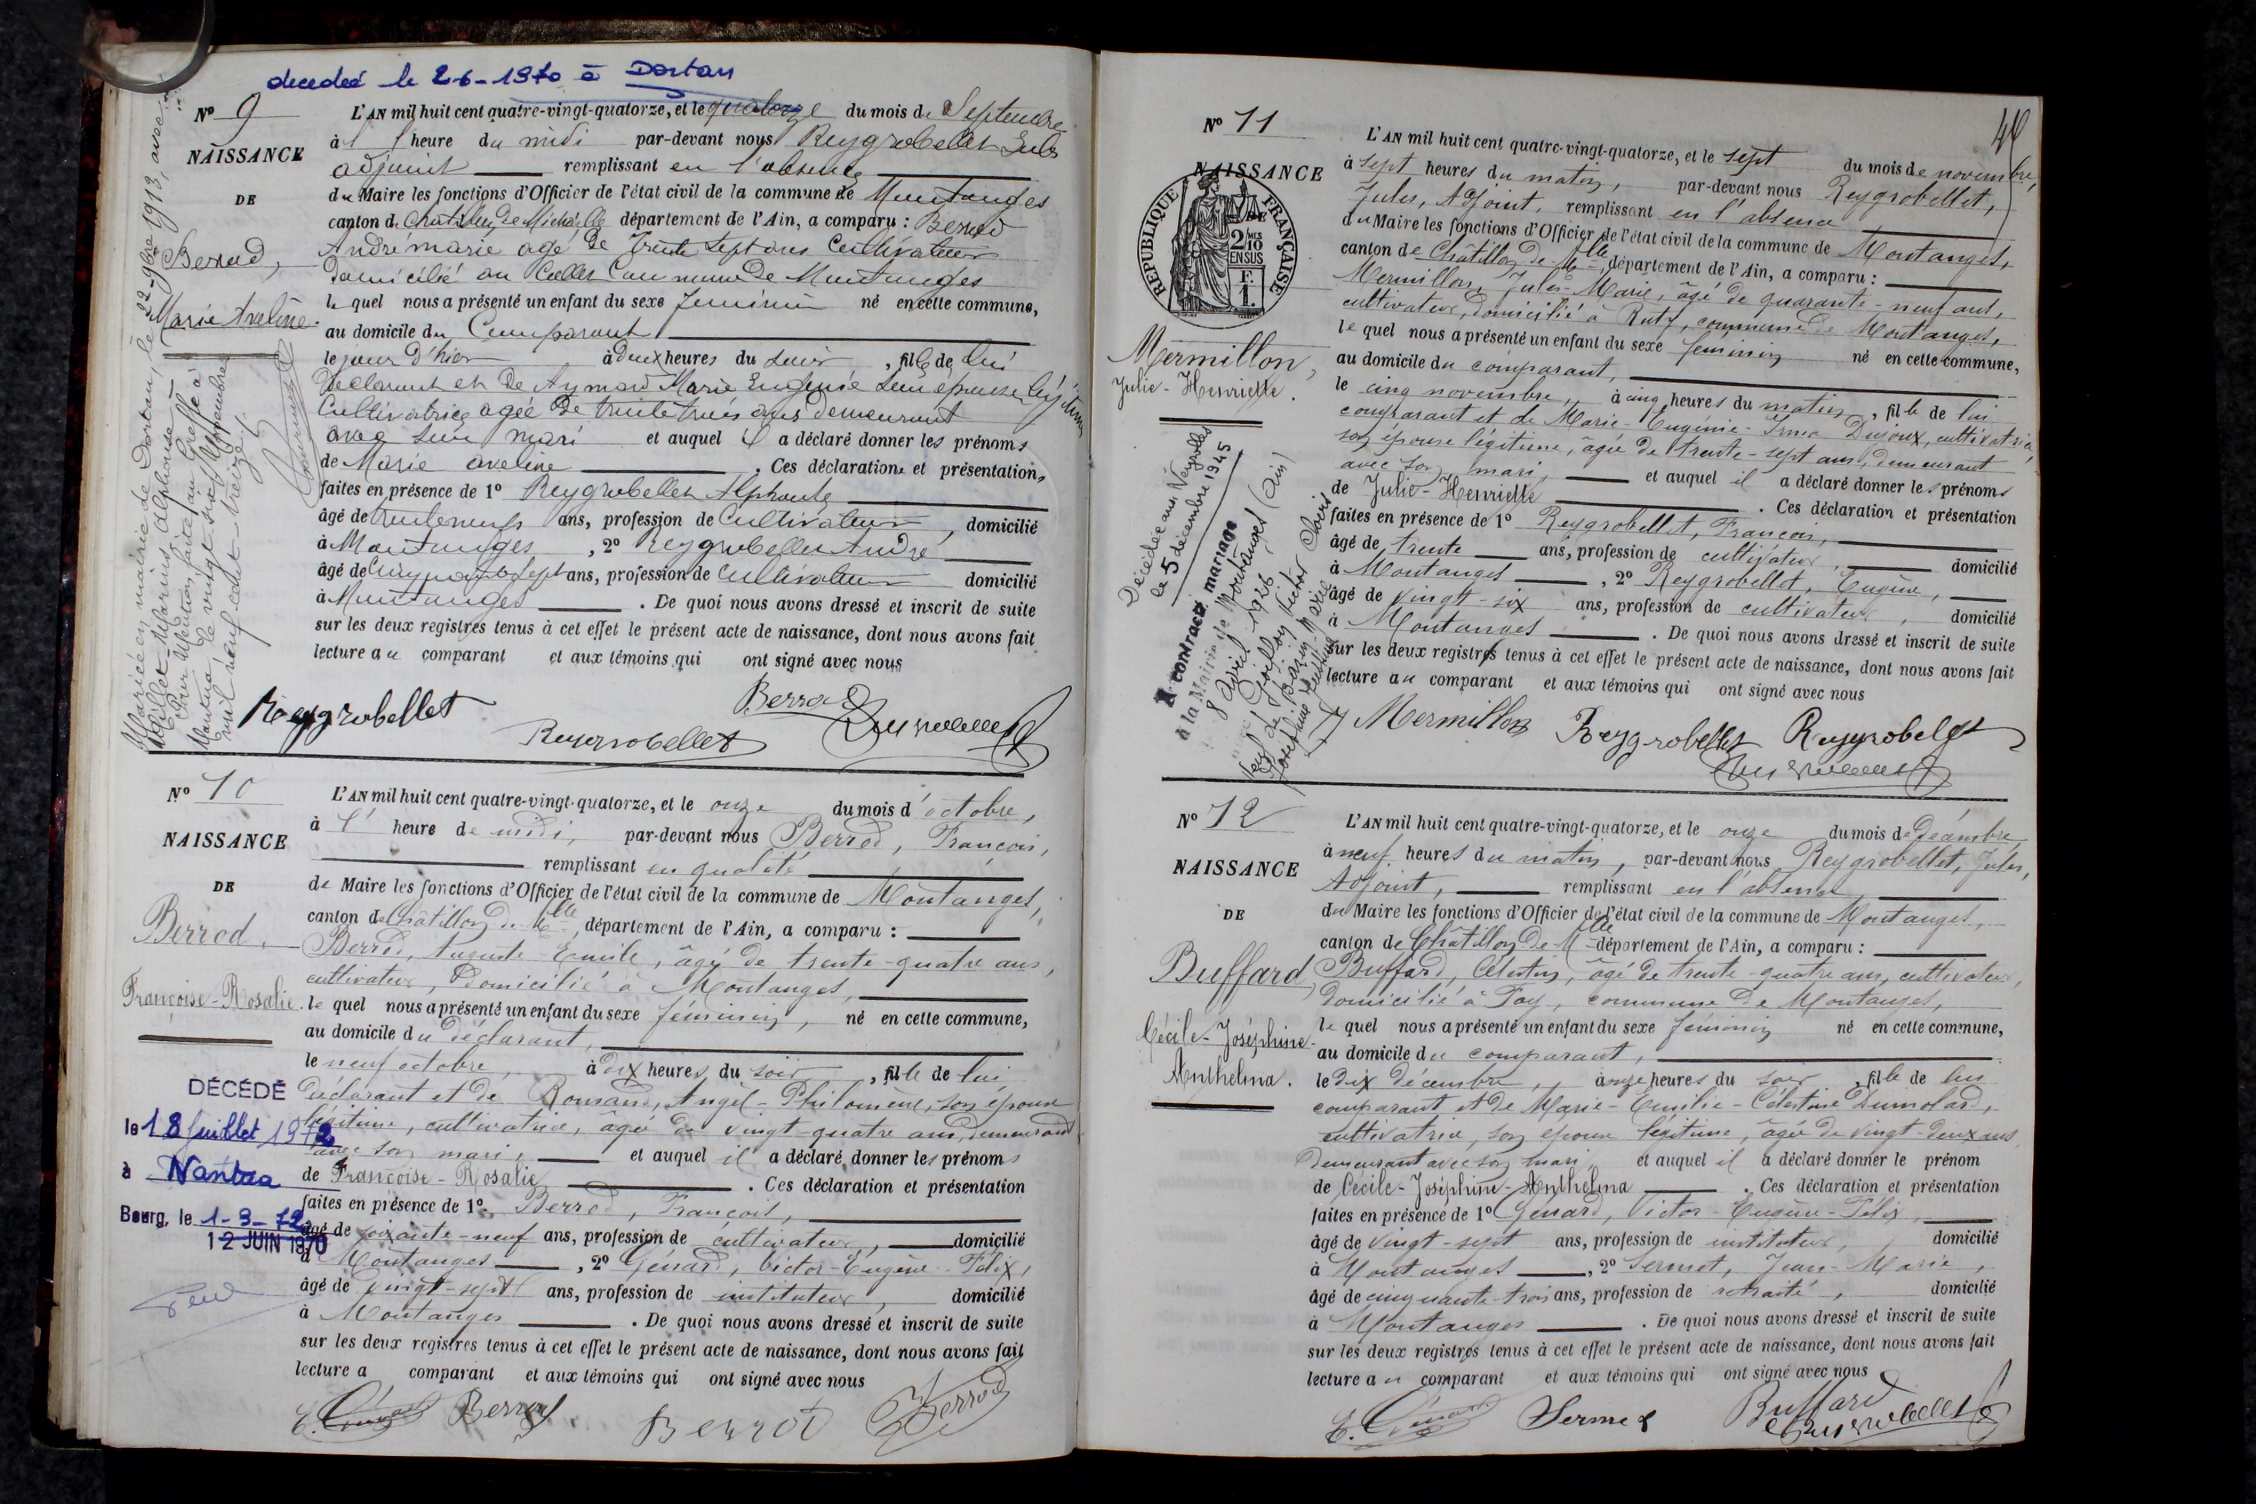 decedeé le 2-6-1970 à Dortan
Nº 9
NAISSANCE
DE
Berrod,
Marie Aveline.
Mariée en mairie de Dortan, le 22 9bre 1913, avec
Millet Marius Alphonse
Pour Mention faite au Greffe à
Nantua le vingt six Novembre
mil neuf cent treize.
L'AN mil huit cent quatre-vingt-quatorze, et le quatorze du mois de Septembre
à 1 heure du midi par-devant nous Reygrobellet Jules
adjoint remplissant en l'absence
du Maire les fonctions d'Officier de l'état civil de la commune de Montanges
canton de Chatillon de Michaille département de l'Ain, a comparu : Berrod
André marie agé de trente sept ans Cultivateur
domicilié au Commune de Montanges
lequel nous a présenté un enfant du sexe féminin né en cette commune,
au domicile du Comparant
le jour d'hier à deux heures du soir, fille de lui
déclarant et de Aymard Marie Eugénie son épouse légitime
Cultivatrice agée de trente trois ans demeurant
avec son mari et auquel il a déclaré donner les prénoms
de Marie aveline. Ces déclarations et présentation,
faites en présence de 1º Reygrobellet Alphonse
âgé de trente neuf ans, profession de Cultivateur, domicilié
à Montanges, 2º Reygrobellet André
âgé de Cinquante sept ans, profession de Cultivateur domicilié
à Montanges. De quoi nous avons dressé et inscrit de suite
sur les deux registres tenus à cet effet le présent acte de naissance, dont nous avons fait
lecture au comparant et aux témoins qui ont signé avec nous
Reygrobellet Berrod
Reygrobellet
Nº 10
NAISSANCE
DE
Berrod.
Françoise-Rosalie.
DÉCÉDÉ
le 18 Juillet 197
à Nantua
Bourg, le 1-3-72
12 JUIN 1970
L'AN mil huit cent quatre-vingt-quatorze, et le onze du mois d'octobre,
à 1 heure de midi, par-devant nous Berrod, François,
remplissant en qualité
de Maire les fonctions d'Officier de l'état civil de la commune de Montanges,
canton de Châtillon de Mlle, département de l'Ain, a comparu :
Berrod, Auguste-Emile, âgé de trente-quatre ans,
cultivateur, domicilié à Montanges,
lequel nous a présenté un enfant du sexe féminin, né en cette commune,
au domicile du déclarant,
le neuf octobre, à dix heures du soir, fille de lui
déclarant et de Romand, Angèl-Philomène, son épouse
légitime, cultivatrice, âgée de vingt-quatre ans, demeurant
avec son mari, et auquel il a déclaré donner les prénoms
de Françoise-Rosalie. Ces déclaration et présentation
faites en présence de 1º Berrod, François,
âgé de soixante-neuf ans, profession de cultivateur, domicilié
à Montanges, 2º Génard, Victor-Eugène-Félix,
âgé de vingt-sept ans, profession de instituteur, domicilié
à Montanges. De quoi nous avons dressé et inscrit de suite
sur les deux registres tenus à cet effet le présent acte de naissance, dont nous avons fait
lecture a comparant et aux témoins qui ont signé avec nous
E. Génard Berrod Berrod Berrod
Nº 11
NAISSANCE
DE
RÉPUBLIQUE FRANÇAISE
2/10 MES
EN SUS
F.
1.
Mermillon,
Julie-Henriette.
Décédée aux Neyrolles
le 5 décembre 1945
A contracté mariage
à la Mairie de Montanges (Ain)
8 Avril 1926
L'AN mil huit cent quatre-vingt-quatorze, et le sept du mois de novembre,
à sept heures du matin, par-devant nous Reygrobellet,
Jules, Adjoint, remplissant en l'absence
du Maire les fonctions d'Officier de l'état civil de la commune de Montanges,
canton de Châtillon de Mlle, département de l'Ain, a comparu :
Mermillon, Jules-Marie, âgé de quarante-neuf ans,
cultivateur, domicilié à Ruty, commune de Montanges,
lequel nous a présenté un enfant du sexe féminin né en cette commune,
au domicile du comparant,
le cinq novembre, à cinq heures du matin, fille de lui
comparant et de Marie-Eugénie-Irma Dujoux, cultivatrice,
son épouse légitime, âgée de trente-sept ans, demeurant
avec son mari, et auquel il a déclaré donner les prénoms
de Julie-Henriette. Ces déclaration et présentation
faites en présence de 1º Reygrobellet, François,
âgé de trente ans, profession de cultivateur, domicilié
à Montanges, 2º Reygrobellet, Eugène,
âgé de vingt-six ans, profession de cultivateur, domicilié
à Montanges. De quoi nous avons dressé et inscrit de suite
sur les deux registres tenus à cet effet le présent acte de naissance, dont nous avons fait
lecture au comparant et aux témoins qui ont signé avec nous
Mermillon Reygrobellet Reygrobellet
Nº 12
NAISSANCE
DE
Buffard,
Cécile-Joséphine-
Anthelma.
L'AN mil huit cent quatre-vingt-quatorze, et le onze du mois de décembre,
à neuf heures du matin, par-devant nous Reygrobellet, Jules,
Adjoint, remplissant en l'absence
du Maire les fonctions d'Officier de l'état civil de la commune de Montanges,
canton de Châtillon de Mlle département de l'Ain, a comparu :
Buffard, Célestin, âgé de trente-quatre ans, cultivateur,
domicilié à Fay, commune de Montanges,
lequel nous a présenté un enfant du sexe féminin né en cette commune,
au domicile du comparant,
le dix décembre, à onze heures du soir, fille de lui
comparant et de Marie-Emilie-Célestine Dumolard,
cultivatrice, son épouse légitime, âgée de vingt-deux ans,
demeurant avec son mari, et auquel il a déclaré donner le prénom
de Cécile-Joséphine-Anthelma. Ces déclaration et présentation
faites en présence de 1º Génard, Victor-Eugène-Félix,
âgé de vingt-sept ans, profession de instituteur, domicilié
à Montanges, 2º Sermet, Jean-Marie,
âgé de cinquante-trois ans, profession de retraité, domicilié
à Montanges. De quoi nous avons dressé et inscrit de suite
sur les deux registres tenus à cet effet le présent acte de naissance, dont nous avons fait
lecture au comparant et aux témoins qui ont signé avec nous
E. Génard Sermet Buffard
Reygrobellet